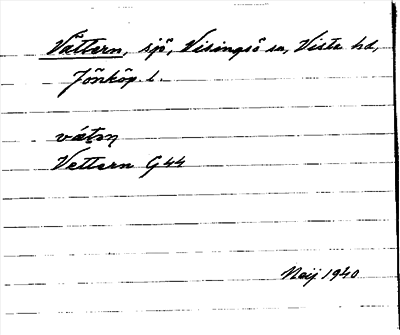 Vättern, sjö, Visingsö sn, Vista hd,
Jönköp. l.
vätəṇ
Vettern G 44
Neij 1940